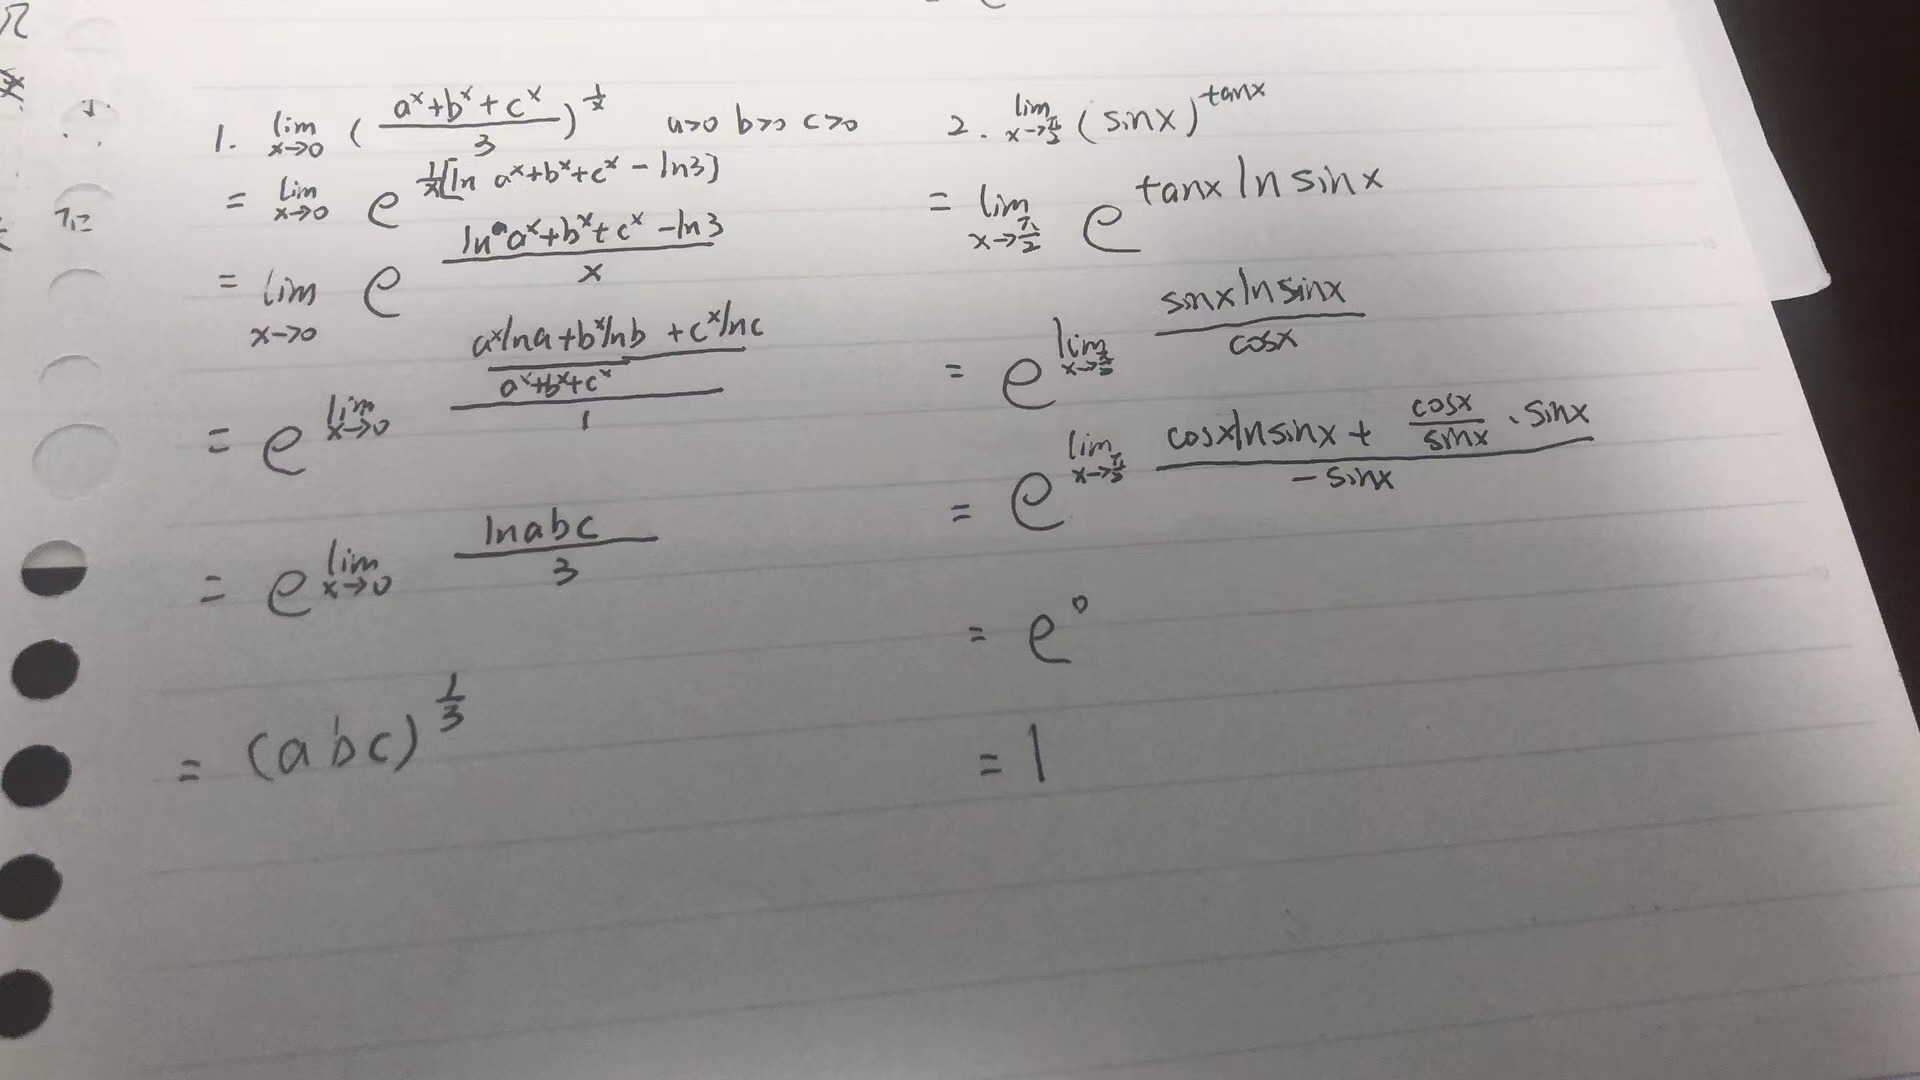 1. lim x→0 ( (a^x+b^x+c^x)/3 )^(1/x) a>0 b>0 c>0
= lim x→0 e^(1/x[ln a^x+b^x+c^x - ln3])
= lim x→0 e^((ln a^x+b^x+c^x - ln3)/x)
= e^(lim x→0 ((a^x lna + b^x lnb + c^x lnc)/(a^x+b^x+c^x))/1)
= e^(lim x→0 (lnabc)/3)
= (abc)^(1/3)
2. lim x→π/2 (sinx)^tanx
= lim x→π/2 e^(tanx ln sinx)
= e^(lim x→π/2 (sinx ln sinx)/cosx)
= e^(lim x→π/2 (cosx ln sinx + (cosx/sinx)·sinx)/(-sinx))
= e^0
= 1